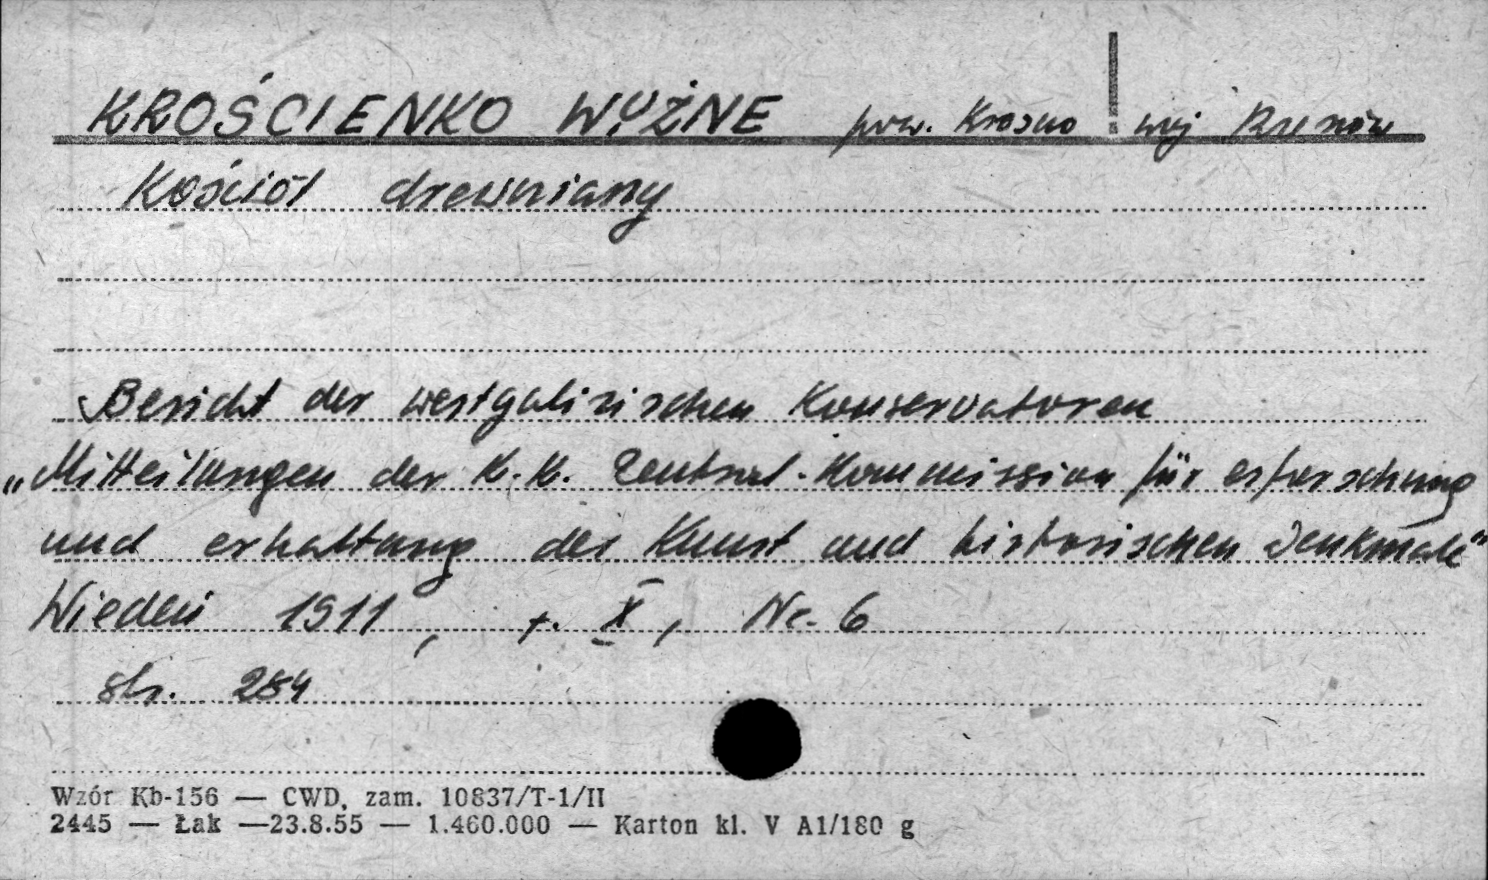 KROŚCIENKO WYŻNE pow. Krosno woj Rzeszów
Kościół drewniany
Bericht der westgalizischen Konservatoren
„Mitteilungen der K.K. Zentral-Kommission für erforschung
und erhaltung der Kunst und historischen Denkmale"
Wiedeń 1911, t. X, Nr. 6
str. 284
Wzór Kb-156 — CWD, zam. 10837/T-1/II
2445 — Łak —23.8.55 — 1.460.000 — Karton kl. V A1/180 g